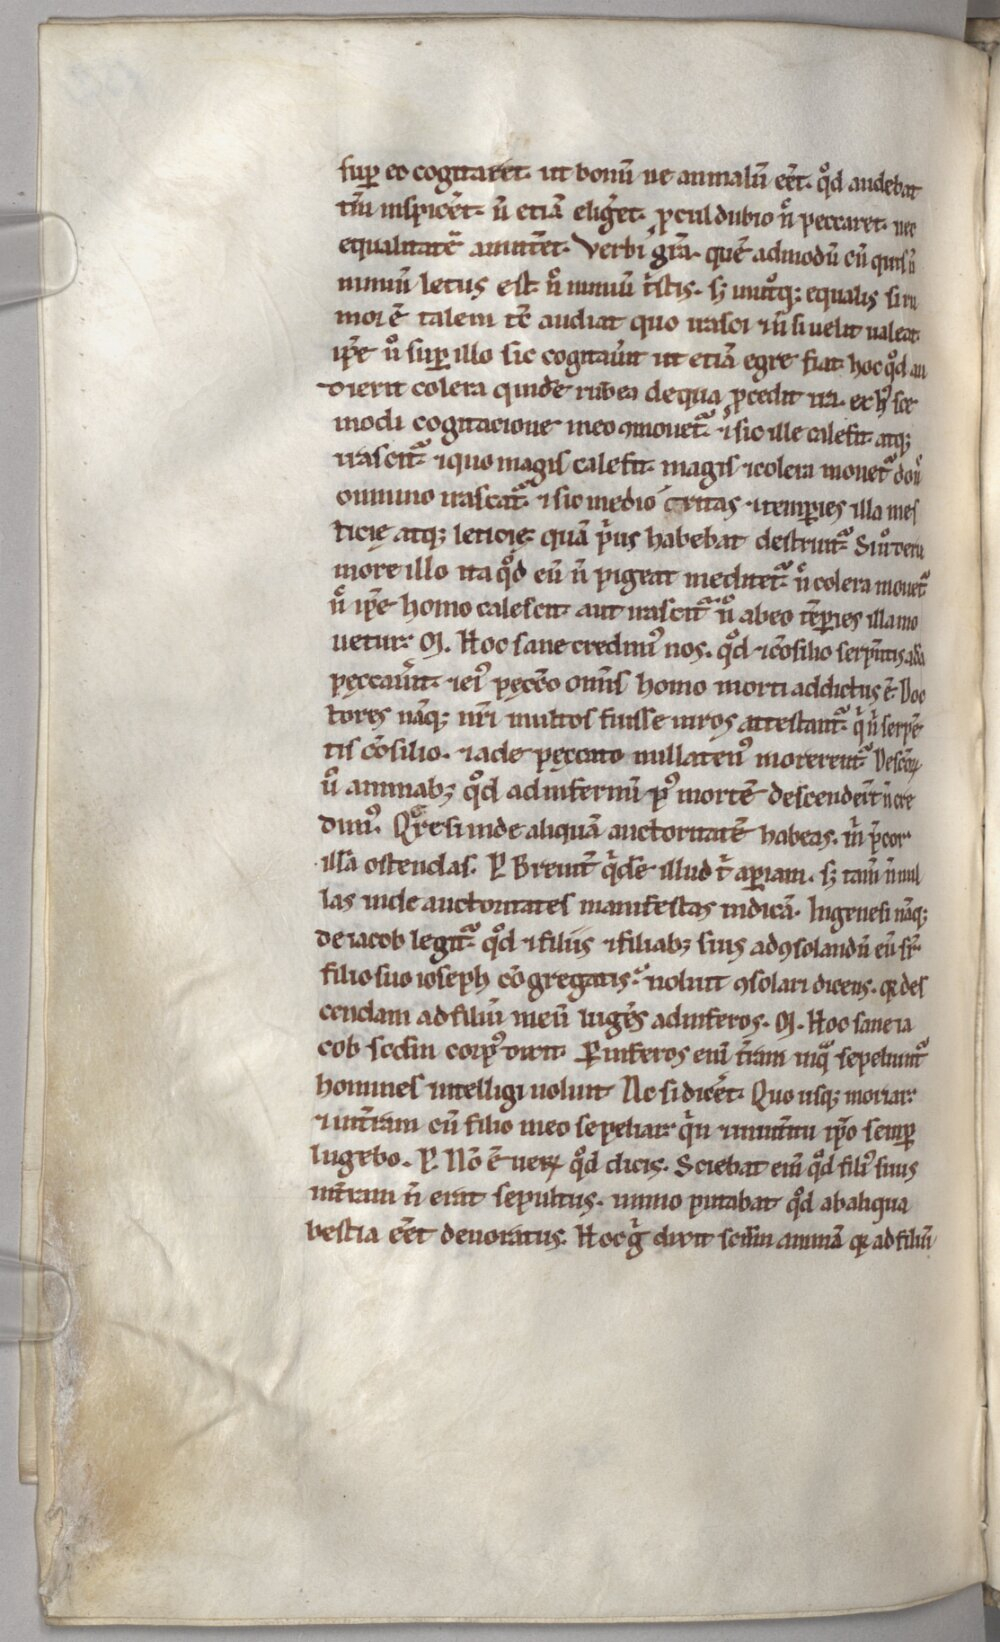 sup eo cogitaret. ut bonũ ue an malũ eẽt. qd̊ audebat
tm̃ inspicẽt. ñ etiã elig̃et. ꝓcul dubio ñ peccaret. nec
equalitatẽ amitt̃et. Verbi gr̃a. quẽ admodũ cũ quis ñ
nimiũ letus est. ñ nimiũ tristis. sꝫ utrũqꝫ equalis. si ru
morẽ talem tc̃ audiat quo irasci ⁊ ñ si uelit ualeat.
ip̃e ũ sup illo sic cogitau̾it ut etiã egre fiat hoc qd̊ au
dierit colera quidẽ rubea de qua ꝓcedit ira. ex hꝰsce
modi cogitacione in eo ꝯmouet̃. ⁊ sic ille calefit atqꝫ
irascit̃. ⁊ quo magis calefit. magis ⁊ colera mouet̃ don̾
omnino irascat̃. ⁊ sic mediocritas ⁊ temperies illa mes
ticię atqꝫ leticię quã p̾us habebat destruit̃. Si ũ de ru
more illo ita qd̊ eũ ñ pigeat meditet̃. ñ colera mouet̃
ñ ip̃e homo calescit. aut irascit̃. ñ ab eo tẽperies illa mo
uetur. M. Hoc sane credimꝰ nos. qd̊ ⁊ cõsilio serp̃ntis adã
peccau̾it. ⁊ eiꝰ pecc̃o om̃is homo morti addictus ẽ. Doc
tores nãqꝫ nr̃i multos fuisse uiros attestant̃. qui ñ serpẽ
tis cõsilio. ⁊ ade peccato nullatenꝰ morerent̃. De sc̃oꝝ
ũ animabꝫ qd̊ ad infernũ pꝰ mortẽ descender̃t ñ cre
dimꝰ. Q̾re si inde aliquã auctoritatẽ habeas. m̾ p̃cor
illã ostendas. P. Breuit̃ q̾dẽ illud t̾ apiam. sꝫ tam̃ ñ nul
las inde auctoritates manifestas indicã. In genesi nãqꝫ
de iacob legit̃. qd̊ ⁊ filiis ⁊ filiabꝫ suis ad ꝯsolandũ eũ sr̃
filio suo ioseph cõgregatis. noluit ꝯsolari dicens. qꝛ des
cendam ad filiũ meũ lugẽs ad inferos. M. Hoc sane ia
cob scd̃m corpꝰ dixit. Per inferos enĩ t̃ram in qua sepeliunt̃
homines intelligi uoluit. Ac si dicẽt. Quo usqꝫ moriar.
⁊ in t̃ram cũ filio meo sepeliar. q̾n ⁊ in int̃itu ip̃o semp
lugebo. P. Nõ ẽ ueꝝ qd̊ dicis. Sciebat eni qd̊ filiꝰ suus
in t̃ram ñ erat sepultus. immo putabat qd̊ ab aliqua
bestia eẽt deuoratus. Hoc g̾ dixit scd̃m animã qꝛ ad filiũ